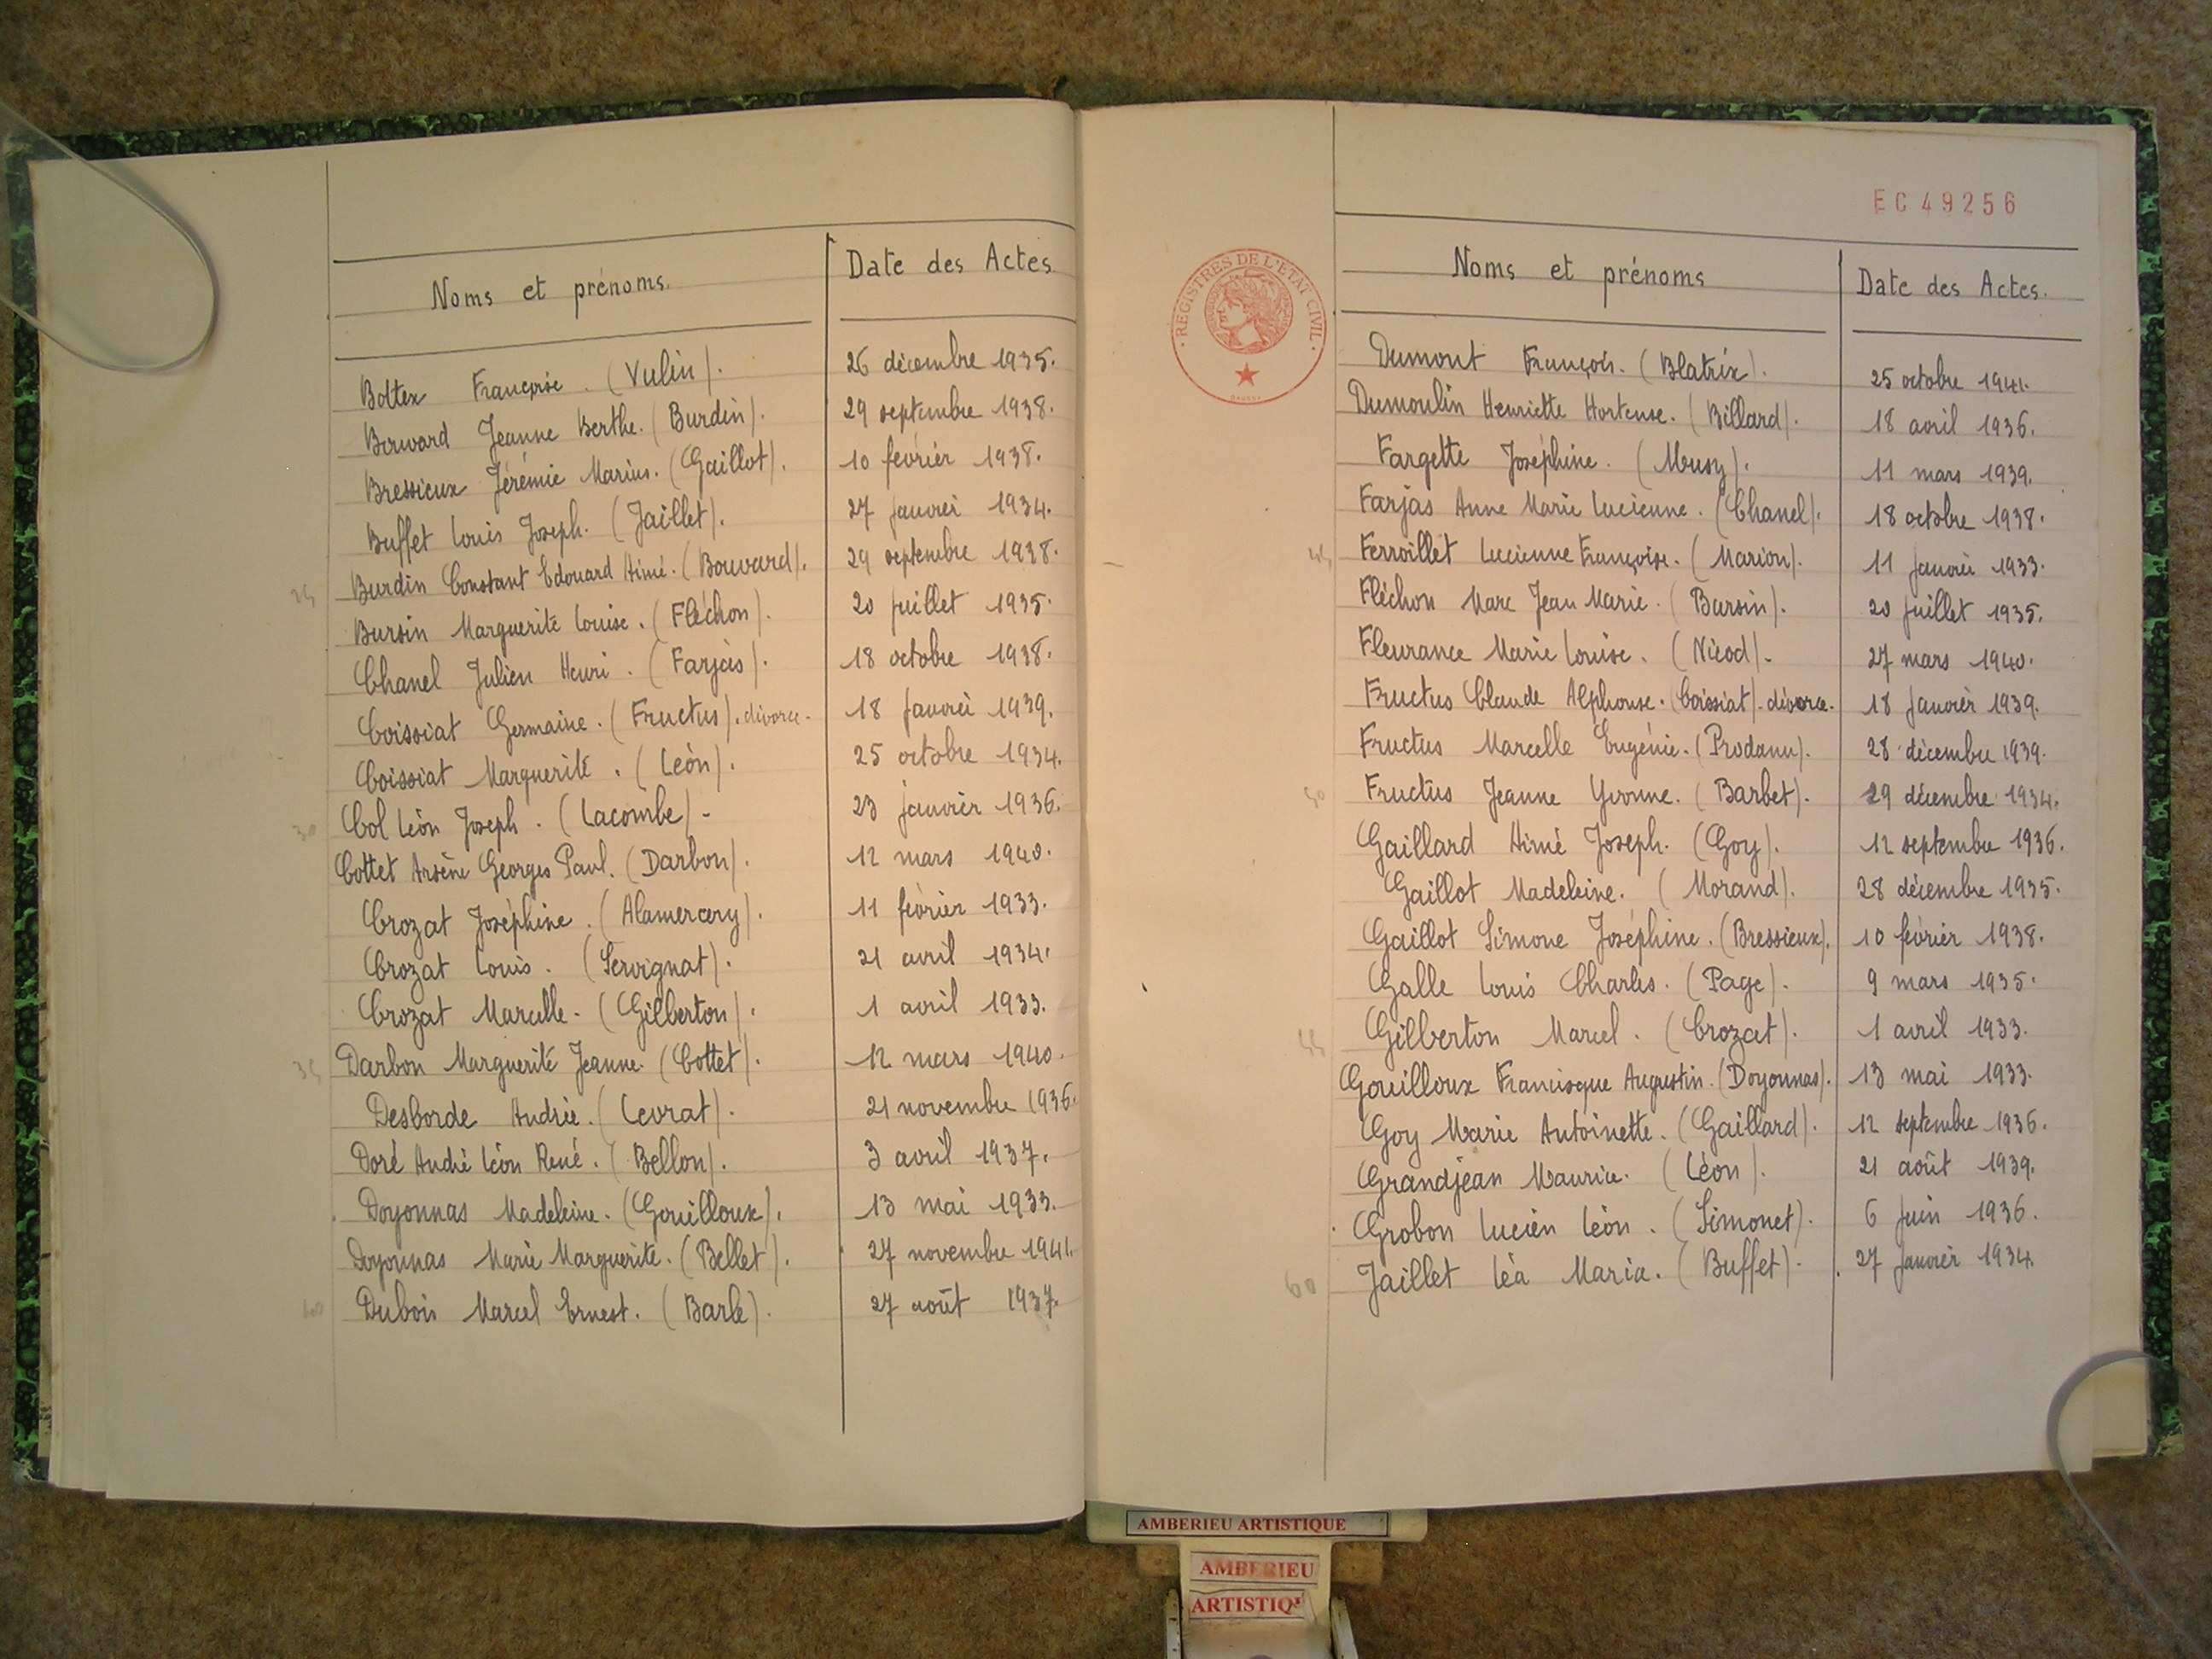 Noms et prénoms. Date des Actes
Boltex Françoise. (Vulin). 26 décembre 1935.
Berward Jeanne Berthe. (Burdin). 29 septembre 1938.
Bressieux Jérémie Marius. (Gaillot). 10 février 1938.
Buffet Louis Joseph. (Jaillet). 27 janvier 1934.
25 Burdin Constant Edouard Aimé. (Bouvard). 29 septembre 1938.
Bursin Marguerite Louise. (Fléchon). 20 juillet 1935.
Chanel Julien Henri. (Farjas). 18 octobre 1938.
Coissiat Germaine. (Fructus). divorce. 18 janvier 1939.
Coissiat Marguerite. (Léon). 25 octobre 1934.
30 Col Léon Joseph. (Lacombe). 23 janvier 1936.
Cottet Arsène Georges Paul. (Darbon). 12 mars 1940.
Crozat Joséphine. (Alamercery). 11 février 1933.
Crozat Louis. (Servignat). 21 avril 1934.
Crozat Marcelle. (Gilberton). 1 avril 1933.
35 Darbon Marguerite Jeanne. (Cottet). 12 mars 1940.
Desborde Andrée. (Levrat). 21 novembre 1936.
Doré André Léon René. (Bellon). 3 avril 1937.
Doyonnas Madeleine. (Gouilloux). 13 mai 1933.
Doyonnas Marie Marguerite. (Bellet). 27 novembre 1941.
40 Dubois Marcel Ernest. (Barle). 27 août 1937.
EC49256
REGISTRES DE L'ÉTAT CIVIL
Noms et prénoms Date des Actes.
Dumont François. (Blatrix). 25 octobre 1941.
Dumoulin Henriette Hortense. (Billard). 18 avril 1936.
Fargette Joséphine. (Musy). 11 mars 1939.
Farjas Anne Marie Lucienne. (Chanel). 18 octobre 1938.
45 Ferroillet Lucienne Françoise. (Marion). 11 janvier 1933.
Fléchon Marc Jean Marie. (Bursin). 20 juillet 1935.
Fleurance Marie Louise. (Nicod). 27 mars 1940.
Fructus Claude Alphonse. (Coissiat). divorce. 18 janvier 1939.
Fructus Marcelle Eugénie. (Prodanu). 28 décembre 1939.
50 Fructus Jeanne Yvonne. (Barbet). 29 décembre 1934.
Gaillard Aimé Joseph. (Goy). 12 septembre 1936.
Gaillot Madeleine. (Morand). 28 décembre 1935.
Gaillot Simone Joséphine. (Bressieux). 10 février 1938.
Galle Louis Charles. (Page). 9 mars 1935.
55 Gilberton Marcel. (Crozat). 1 avril 1933.
Gouilloux Francisque Augustin. (Doyonnas). 13 mai 1933.
Goy Marie Antoinette. (Gaillard). 12 septembre 1936.
Grandjean Maurice. (Léon). 21 août 1939.
Grobon Lucien Léon. (Simonet). 6 juin 1936.
60 Jaillet Léa Maria. (Buffet). 27 janvier 1934.
AMBERIEU ARTISTIQUE
AMBERIEU
ARTISTIQ